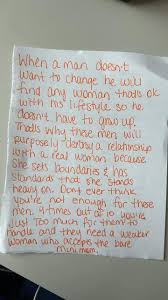 When a man doesn't
want to change he will
find any woman that's ok
with his lifestyle so he
doesn't have to grow up.
That's why these men will
purposely destroy a relationship
with a real woman because
she sets boundaries & has
standards that she stands
heavy on. Don't ever think
you're not enough for these
men, 9 times out of 10 you're
just too much for them to
handle and they need a weaker
woman who accepts the bare
minimum.